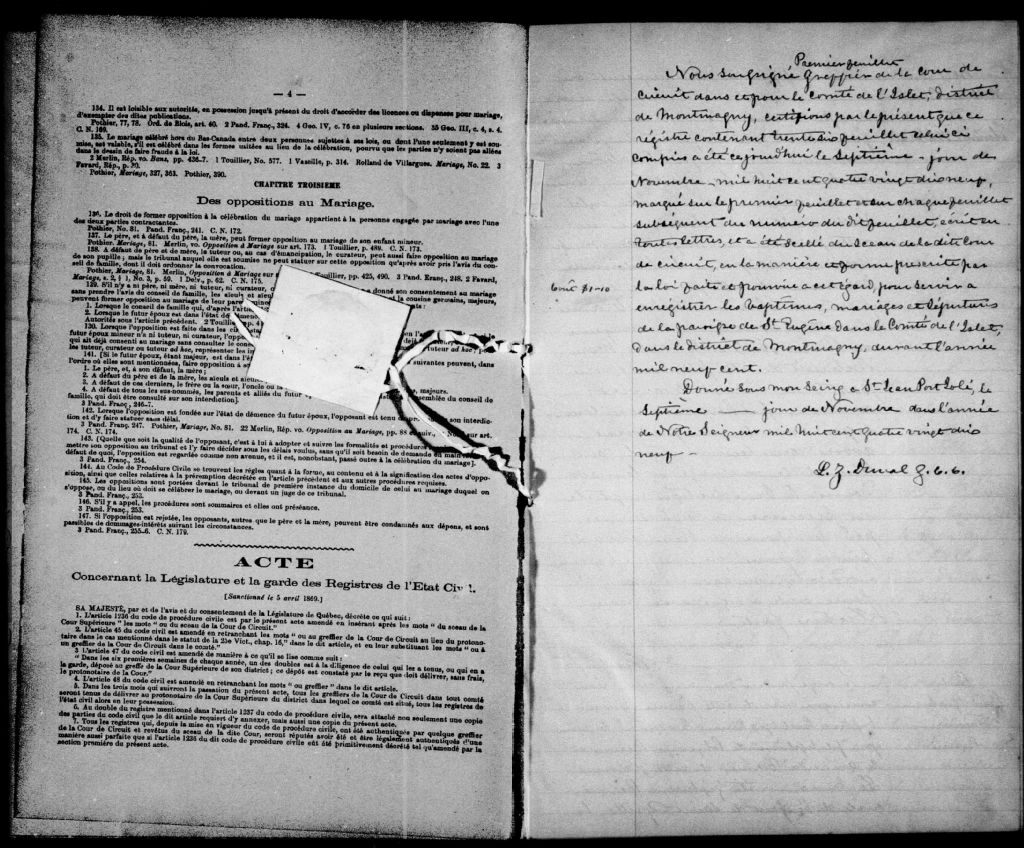 — 4 —
134. Il est loisible aux autorités, en possession jusqu'à présent du droit d'accorder des licences ou dispenses pour mariage,
d'exempter des dites publications.
Pothier, 77, 78. Ord. de Blois, art. 40. 2 Pand. Franç., 324. 4 Geo. IV, c. 76 en plusieurs sections. 35 Geo. III, c. 4, s. 4.
C. N. 169.
135. Le mariage célébré hors du Bas-Canada entre deux personnes sujettes à ses lois, ou dont l'une seulement y est sou-
mise, est valable, s'il est célébré dans les formes usitées au lieu de la célébration, pourvu que les parties n'y soient pas allées
dans le dessin de faire fraude à la loi.
2 Merlin, Rép. vo. Bans, pp. 436-7. 1 Touillier, No. 577. 1 Vazille, p. 314. Rolland de Villargues. Mariage, No. 22. 3
Favard, Rép., p. 20.
Pothier, Mariage, 327, 363. Pothier, 390.
CHAPITRE TROISIEME
Des oppositions au Mariage.
136. Le droit de former opposition à la célébration du mariage appartient à la personne engagée par mariage avec l'une
des deux parties contractantes.
Pothier, No. 81. Pand. Franç., 241. C. N. 172.
137. Le père, et à défaut du père, la mère, peut former opposition au mariage de son enfant mineur.
Pothier, Mariage, 81. Merlin, vo. Opposition à Mariage sur art. 173. 1 Touillier, p. 489. C. N. 173.
138. A défaut de père et de mère, le tuteur ou, au cas d'émancipation, le curateur, peut aussi faire opposition au mariage
de son pupille; mais le tribunal auquel elle est soumise ne peut statuer sur cette opposition qu'après avoir pris l'avis du con-
seil de famille, dont il doit ordonner la convocation.
Pothier, Mariage, 81. Merlin, Opposition à Mariage sur Touillier, pp. 425, 490. 3 Pand. Franç., 248. 2 Favard,
Mariage, s. 2, § 1, No. 3, p. 59. 1 Delv., p. 62. C. N. 175.
129. S'il n'y a ni père, ni mère, ni tuteur, ni curateur, o donné son consentement au mariage
sans prendre l'avis du conseil de famille, les aïeuls et aïeul la cousine germains, majeurs,
peuvent former opposition au mariage de leur parent
1. Lorsque le conseil de famille qui, d'après l'article
2. Lorsque le futur époux est dans l'état de dé
Autorités sous l'article précédent. 2 Touillier, p. 4
130. Lorsque l'opposition est faite dans les circ
futur époux mineur n'a ni tuteur, ni curateur, l'oppo
qui ait déjà consenti au mariage sans consulter le conseil
les tuteur, curateur ou tuteur ad hoc, représenter les in tuteur ad hoc, po
141. [Si le futur époux, étant majeur, est dans l'é suivantes peuvent, dans
l'ordre où elles sont mentionnées, faire opposition à s
1. Le père, et, à son défaut, la mère;
2. A défaut du père et de la mère, les aïeuls et aïeul
3. A défaut de ces derniers, le frère ou la sœur, l'oncle ou majeurs.
4. A défaut de tous les sus-nommés, les parents et alliés du futur semblée du conseil de
famille, qui doit être consulté sur son interdiction].
3 Pand. Franç., 246-7.
142. Lorsque l'opposition est fondée sur l'état de démence du futur époux, l'opposant est tenu son interdic-
tion et d'y faire statuer sans délai.
3 Pand. Franç. 247. Pothier, Mariage, No. 81. 22 Merlin, Rép. vo. Opposition au Mariage, pp. 88 sur art.
174. C. N. 174.
143. (Quelle que soit la qualité de l'opposant, c'est à lui à adopter et suivre les formalités et procédures
mettre son opposition au tribunal et l'y faire décider sous les délais voulus, sans qu'il soit besoin de demande en main
défaut de quoi, l'opposition est regardée comme non avenue, et il est, nonobstant, passé outre à la célébration du mariage].
3 Pand. Franç., 254.
144. Au Code de Procédure Civile se trouvent les règles quant à la forme, au contenu et à la signification des actes d'oppo-
sition, ainsi que celles relatives à la péremption décrétée en l'article précédent et aux autres procédures requises.
145. Les oppositions sont portées devant le tribunal de première instance du domicile de celui au mariage duquel on
s'oppose, ou du lieu où doit se célébrer le mariage, ou devant un juge de ce tribunal.
3 Pand. Franç., 253.
146. S'il y a appel, les procédures sont sommaires et elles ont préséance.
3 Pand. Franç., 253.
147. Si l'opposition est rejetée, les opposants, autres que le père et la mère, peuvent être condamnés aux dépens, et sont
passibles de dommages-intérêts suivant les circonstances.
3 Pand. Franç., 255-6. C. N. 179.
ACTE
Concernant la Législature et la garde des Registres de l'Etat Civil.
[Sanctionné le 5 avril 1869.]
SA MAJESTÉ, par et de l'avis et du consentement de la Législature de Québec, décrète ce qui suit:
1. L'article 1236 du code de procédure civile est par le présent acte amendé en insérant après les mots "du sceau de la
Cour Supérieure" les mots "ou du sceau de la Cour de Circuit."
2. L'article 45 du code civil est amendé en retranchant les mots "ou au greffier de la Cour de Circuit au lieu du protono-
taire dans le cas mentionné dans le statut de la 25e Vict., chap. 16," dans le dit article, et en leur substituant les mots "ou à
un greffier de la Cour de Circuit dans le comté."
3 L'article 47 du code civil est amendé de manière à ce qu'il se lise comme suit:
"Dans les six premières semaines de chaque année, un des doubles est à la diligence de celui qui les a tenus, ou qui en a
la garde, déposé au greffe de la Cour Supérieure de son district; ce dépôt est constaté par le reçu que doit délivrer, sans frais,
le protonotaire de la Cour."
4. L'article 48 du code civil est amendé en retranchant les mots "ou greffier" dans le dit article.
5. Dans les trois mois qui suivront la passation du présent acte, tous les greffiers de la Cour de Circuit dans tout comté
seront tenus de délivrer au protonotaire de la Cour Supérieure du district dans lequel ce comté est situé, tous les registres de
l'état civil alors en leur possession.
6. Au double du registre mentionné dans l'article 1237 du code de procédure civile, sera attaché non seulement une copie
des parties du code civil que le dit article requiert d'y annexer, mais aussi une copie du présent acte.
7. Tous les registres qui, depuis la mise en vigueur du code de procédure civile, ont été authentiqués par quelque greffier
de la Cour de Circuit et revêtus du sceau de la dite Cour, seront réputés avoir été et être légalement authentiqués d'une
manière aussi parfaite que si l'article 1236 du dit code de procédure civile eût été primitivement décrété tel qu'amendé par la
section première du présent acte.
Premier feuillet
Nous soussigné greffier de la cour de
circuit dans et pour le Comté de l'Islet, district
de Montmagny, certifions par le présent que ce
régistre contenant trente six feuillet celui ci
compris a été ce jourd'hui le Septième - jour de
Novembre - mil huit cent quatre vingt dix neuf,
marqué sur le premier feuillet et sur chaque feuillet
subséquent du numéro du dit feuillet, écrit en
toutes lettres, et a été scellé du Sceau de la dite Cour
de circuit, en la manière et forme prescrite par
la loi faite et pourvue a cet égard, pour servir a
enregistrer les baptêmes, mariages et Sépultures
de la paroisse de St Eugène dans le Comté de l'Islet,
dans le district de Montmagny, durant l'année
mil neuf cent.
Donné sous mon Seing a St Jean Port Joli, le
Septième — jour de Novembre dans l'année
de Notre Seigneur mil huit cent quatre vingt dix
neuf -
L. Z. Duval G.C.C.